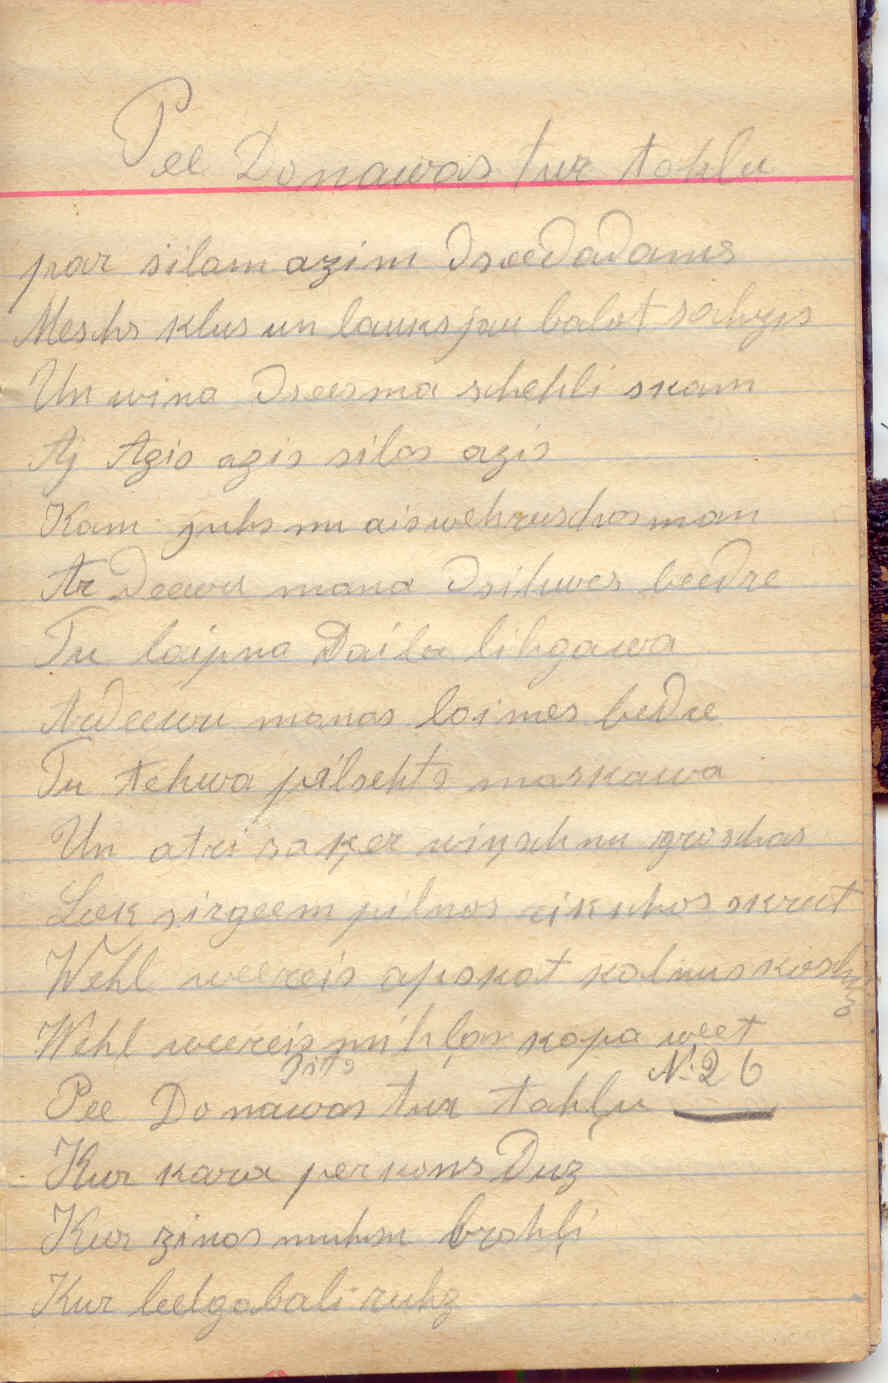 Pee Donawas tur tahlu
par silam azim Dseedadams
Meschs klus un lauks jau balot sahzis
Un wina Dseesma schehli skam
Aj Azis azis silas azis
Kam juhs nu aiswehruschas man
Ar Deewu mana Dsihwes beedre
Tu laipna Daila lihgawa
Ardeewu manas laimes bedre
Tu tehwa pilsehts maskawa
Un atri saķer wiņsch nu groschas
Leek sirgeem pilnos rikschos skreet
Wehl weereis apskat kalnus koschus
Wehl weereis mihļas kapa weet
Zits
N. 26
Pee Donawas tur tahļu
Kur kara perkons Duz
Kur zinas muhsu brahļi
Kur leelgabali ruhz